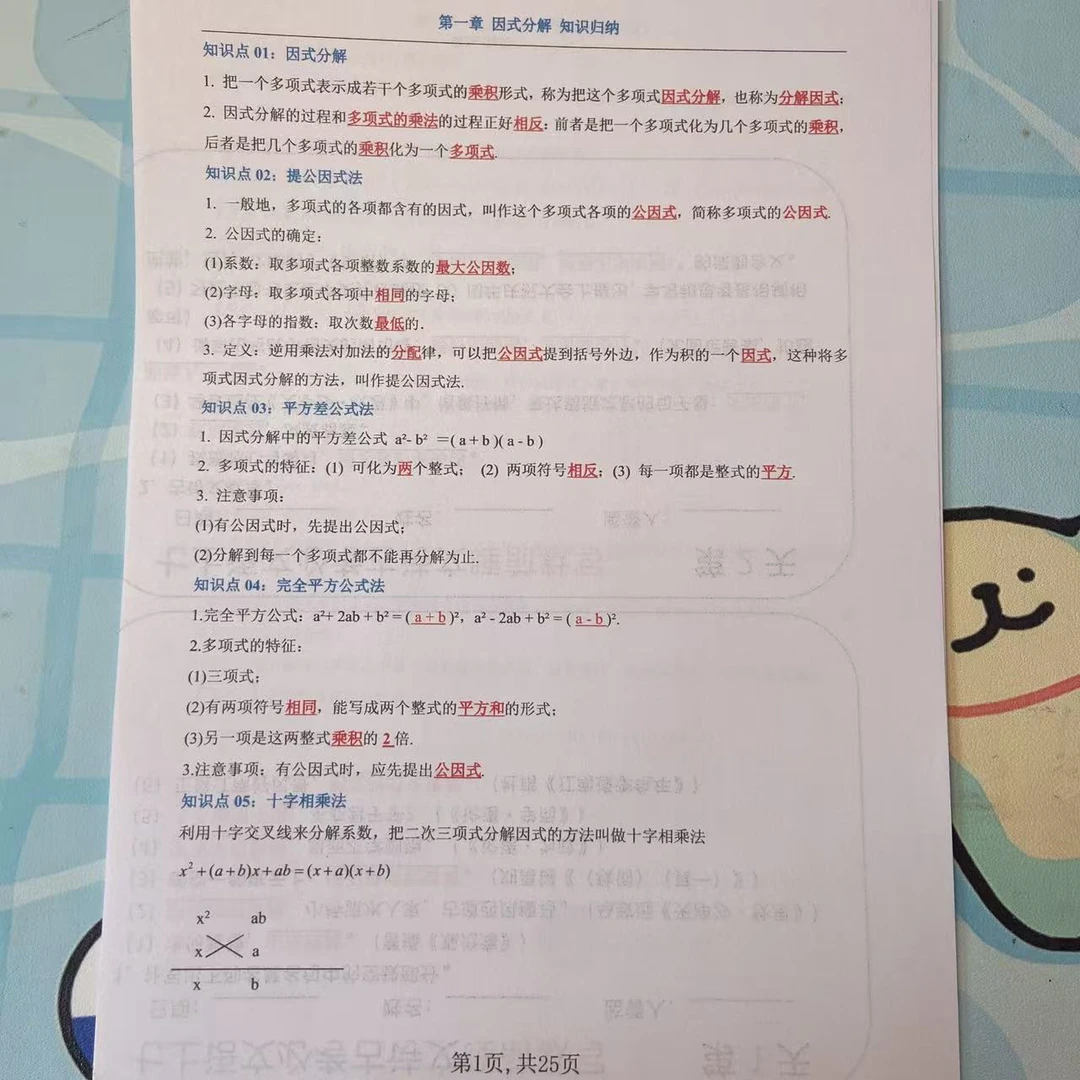 第一章 因式分解 知识归纳
知识点 01：因式分解
1. 把一个多项式表示成若干个多项式的乘积形式，称为把这个多项式因式分解，也称为分解因式；
2. 因式分解的过程和多项式的乘法的过程正好相反：前者是把一个多项式化为几个多项式的乘积，
后者是把几个多项式的乘积化为一个多项式.
知识点 02：提公因式法
1. 一般地，多项式的各项都含有的因式，叫作这个多项式各项的公因式，简称多项式的公因式.
2. 公因式的确定：
(1)系数：取多项式各项整数系数的最大公因数；
(2)字母：取多项式各项中相同的字母；
(3)各字母的指数：取次数最低的.
3. 定义：逆用乘法对加法的分配律，可以把公因式提到括号外边，作为积的一个因式，这种将多
项式因式分解的方法，叫作提公因式法.
知识点 03：平方差公式法
1. 因式分解中的平方差公式 a²- b² =( a + b )( a - b )
2. 多项式的特征：(1) 可化为两个整式； (2) 两项符号相反；(3) 每一项都是整式的平方.
3. 注意事项：
(1)有公因式时，先提出公因式；
(2)分解到每一个多项式都不能再分解为止.
知识点 04：完全平方公式法
1.完全平方公式：a²+ 2ab + b² = ( a + b )²，a² - 2ab + b² = ( a - b )².
2.多项式的特征：
(1)三项式；
(2)有两项符号相同，能写成两个整式的平方和的形式；
(3)另一项是这两整式乘积的 2 倍.
3.注意事项：有公因式时，应先提出公因式.
知识点 05：十字相乘法
利用十字交叉线来分解系数，把二次三项式分解因式的方法叫做十字相乘法
x²+(a+b)x+ab=(x+a)(x+b)
x² ab
x a
x b
第1页,共25页